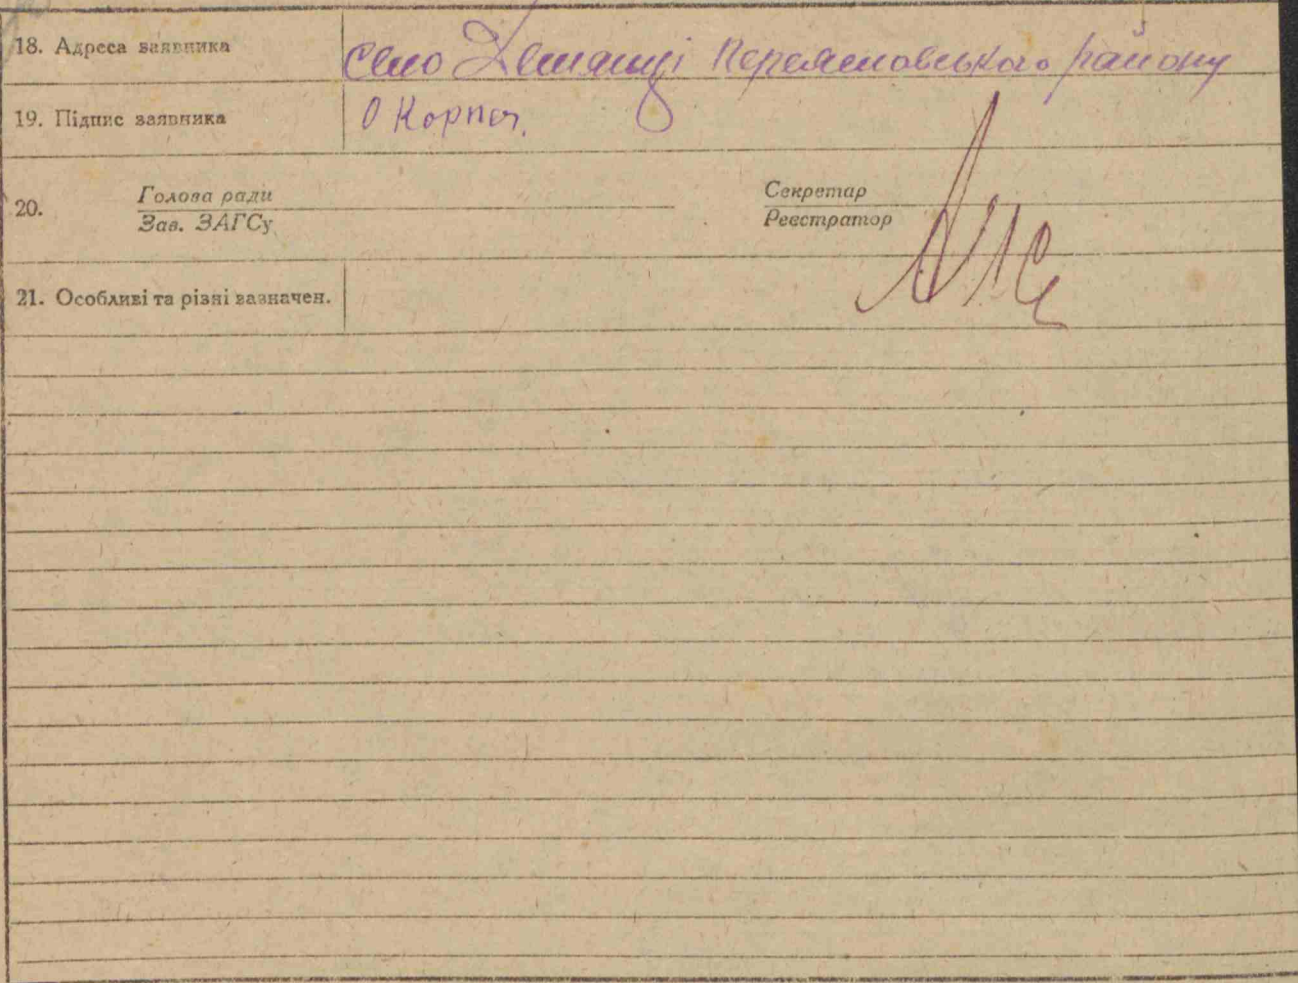 18. Адреса заявника село Демянці Переяславського району
19. Підпис заявника О Корпач.
20. Голова ради Секретар
Зав. ЗАГСу Реєстратор
21. Особливі та різні зазначен.